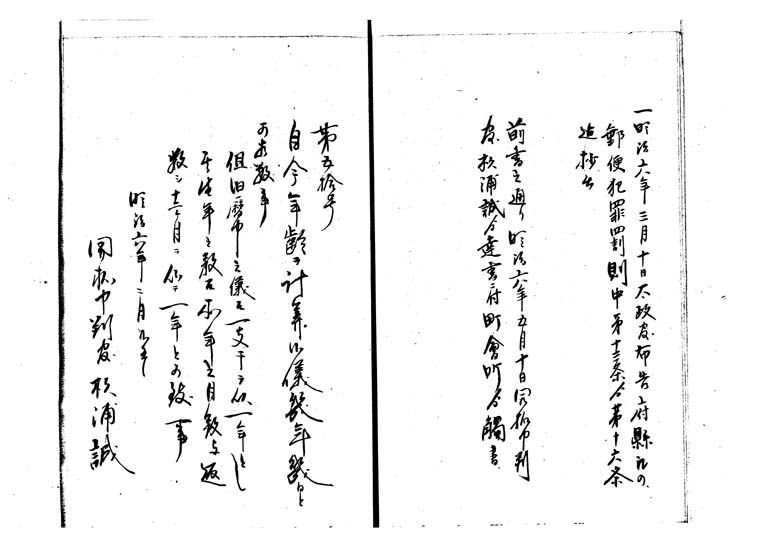 一明治六年三月十日太政官布告府縣江の
郵便犯罪罰則中第十三条ゟ第十六条
迄抄出
前書之通り明治六年五月十日開拓中判
官杉浦誠ゟ達書ニ付町會所ゟ觸書
第五拾号
自今年齢ヲ計算候儀幾年幾月と
可相数事
但旧暦中之儀ハ一支干ヲ以一年とし
其生年之数ト本年之月数与通
数シ十二ケ月ヲ以テ一年との致事
明治六年二月九日
開拓中判官杉浦誠